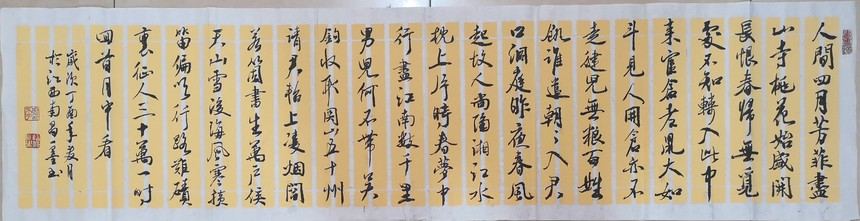 人間四月芳菲盡
山寺桃花始盛開
長恨春歸無覓
處不知轉入此中
來官倉老鼠大如
斗見人開倉亦不
走健兒無粮百姓
飢誰遣朝々入君
口洞庭昨夜春風
起故人尚隔湘江水
枕上片時春夢中
行盡江南數千里
男兒何不帶吳
鉤收取關山五十州
請君暫上凌烟閣
若箇書生萬户侯
天山雪後海風寒橫
笛偏吹行路難磧
裏征人三十萬一時
回首月中看
歲次丁酉年夏月
於江西南昌